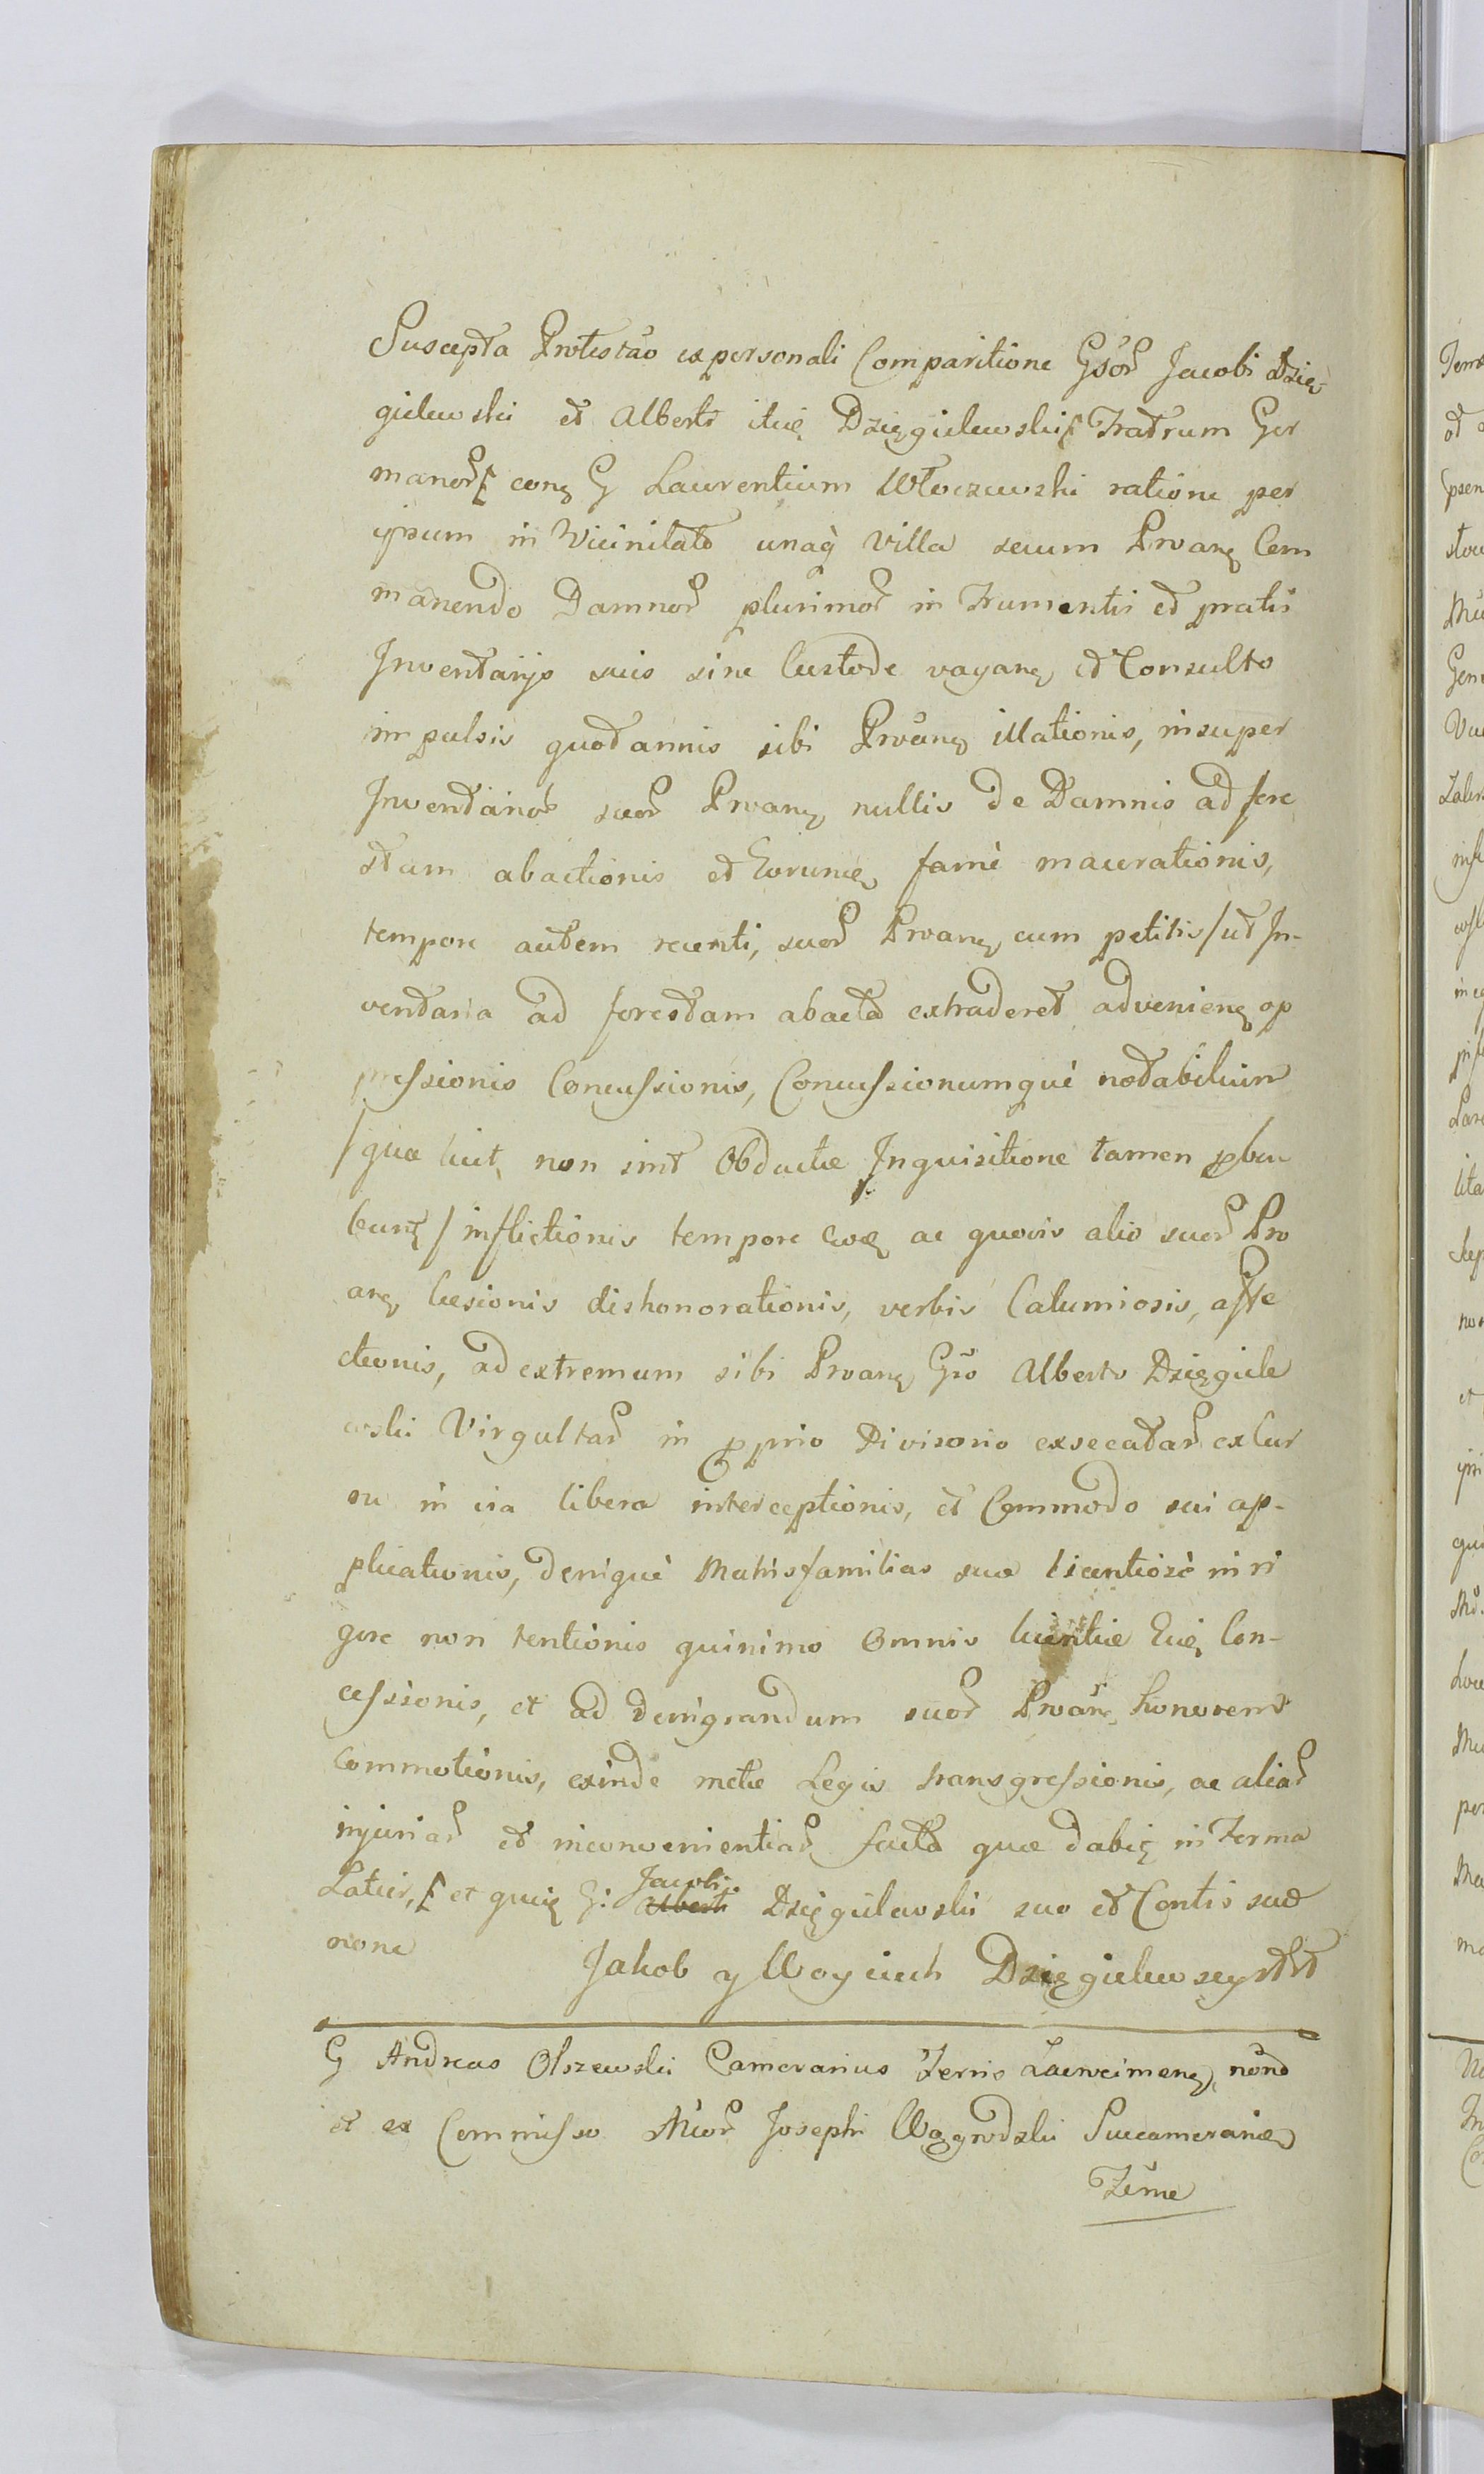 Suscepta Protestao ex personali Comparitione Gsor Jacobi Dzię-
gielewski et Alberti itue Dzięgielewski Fratrum Ger
manor conq G Laurentium Włoczewski ratione per
ipsum in Vicinitate unaq villa secum Prvanq Com
manendo Damnor plurimor in Frumentis et pratis
Inventarijs suis sine Custode vagans et Consulto
impulsis quotannis sibi Prvanq illationis, insuper
Inventarior suor Prvanq nullis de Damnis ad fore
stam abactionis et Eorumq fame macerationis,
tempore autem recenti, suor Prvanq cum petitis / ut In-
ventaria ad forestam abacta extraderet advenienq op
pressionis Concussionis, Concussionumque notabilium
/ quae licet non sint Obductae Inquisitione tamen pbu
bunt / inflictionis tempore eoq ac quovis alio suor Prv
anq laesionis dishonorationis, verbis Calumiosis, affe
ctionis, ad extremum sibi Prvanq Gso Alberto Dzięgiele
wski Virgultar in pprio Divisorio exsecatar ex Cur
su in via libera interceptionis, et Commodo sui ap-
plicationis, denique Matrisfamilias suae licentiose in ri
gore non tentionis quinimo Omnis licentiae Eiq Con-
cessionis, et ad denigrandum suor Prvanq honorem
commotionis, exinde metae Legis transgressionis, ac aliar
injuriar et inconvenientiar facta quae dabiq in Forma
Latior, et quiq G: Jacobi Alberti Dzięgielewski suo et Contis suae
none Jakob y Woyciech Dzięgielewscy
G Andreas Olszewski Camerarius Terris Zawcimenq, nono
et ex Commisso Mcor Josephi Wągrodzki Succamerarii
Zeme